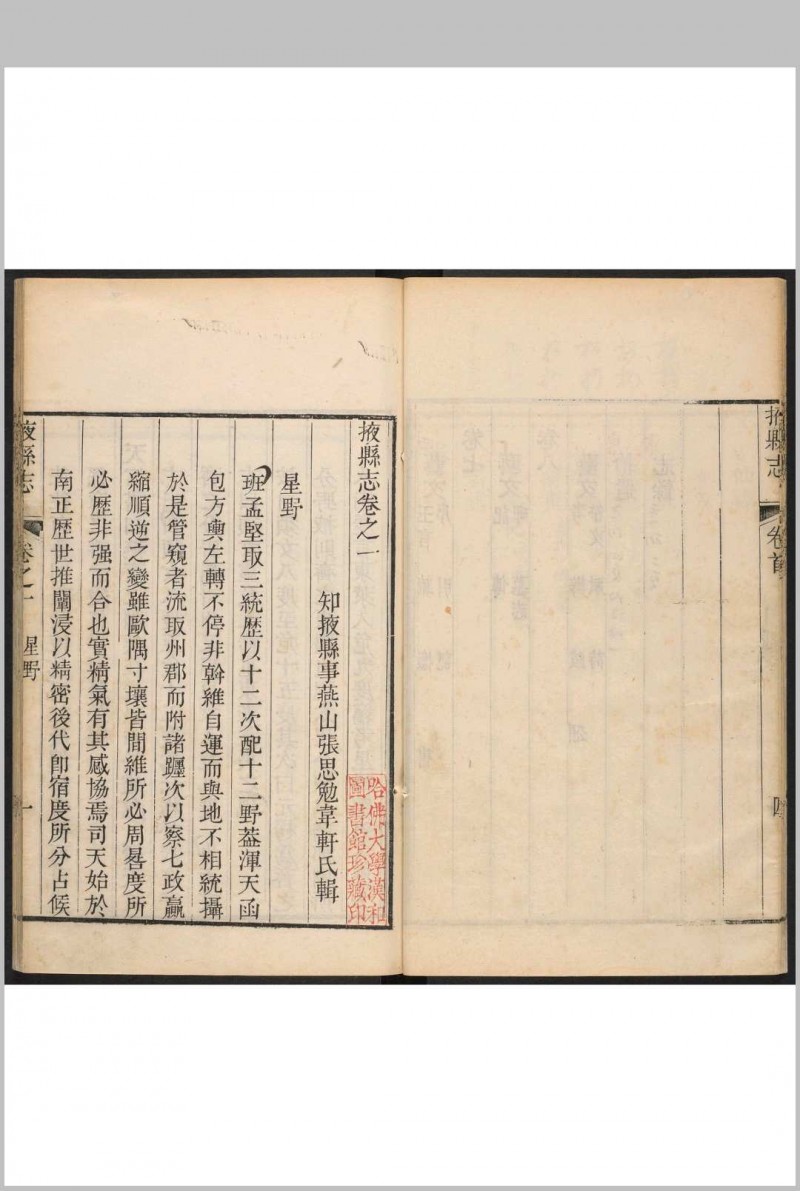 掖縣志
卷首
四
掖縣志卷之一
知掖縣事燕山張思勉韋軒氏輯
哈佛大學漢和
圖書館珍藏印
星野
班孟堅取三統歷以十二次配十二野葢渾天函
包方輿左轉不停非斡維自運而與地不相統攝
於是管窺者流取州郡而附諸躔次以察七政贏
縮順逆之變雖歐隅寸壤皆間維所必周晷度所
必歷非强而合也實精氣有其感協焉司天始於
南正歷世推闡浸以精密後代卽宿度所分占候
掖縣志
卷之一
星野
一